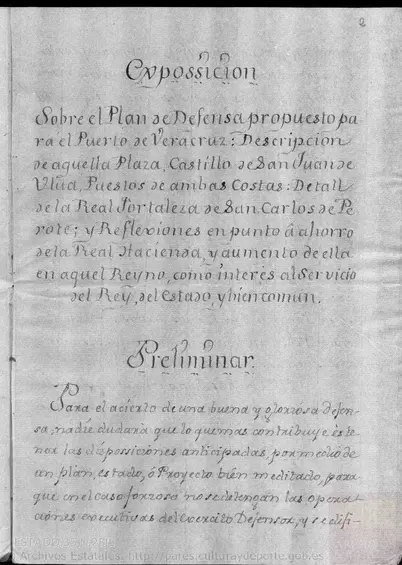 2
Expossicion
Sobre el Plan de Defensa propuesto pa
ra el Puerto de Veracruz: Descripcion
de aquella Plaza, Castillo de San Juan de
Ulúa, Puestos de ambas Costas: Detall
de la Real Fortaleza de San Carlos de Pe
rote; y Reflexiones en punto â ahorro
de la Real Hacienda, y aumento de ella
en aquel Reyno, como interes al Servicio
del Rey, del Estado y bien comun.
Preliminar.
Para el acierto de una buena y gloriosa defen-
sa, nadie dudará que lo que mas contribuye és te
ner las disposiciones anticipadas, por medio de
un plan, estado, ó Proyecto bien meditado, para
que en el caso forzoso no se detengan las opera-
ciones executivas del Exercito Defensor, y se difi-
Archivos Estatales, http://pares.culturaydeporte.gob.es